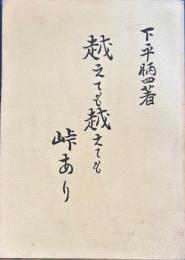 下平昞四著
越えても越えても
峠あり